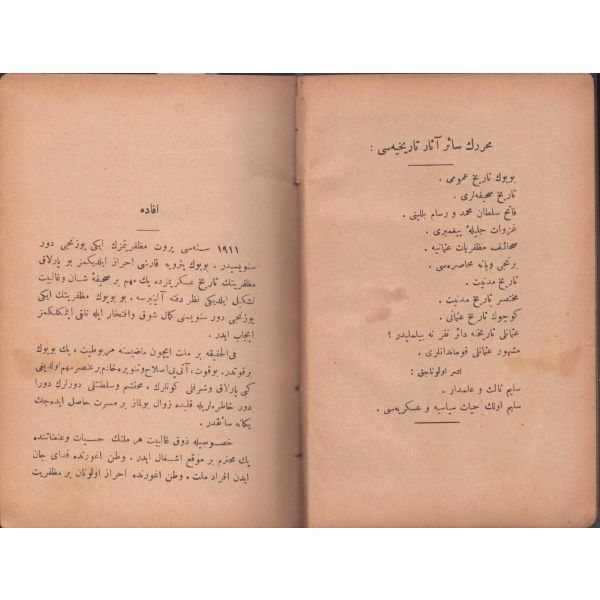 محررك سائر آثار تاريخيه‌سى :
بويوك تاريخ عمومى .
تاريخ صحيفه‌لرى .
فاتح سلطان محمد و رسام بللينى .
غزوات جليلهٔ پيغمبرى .
صحائف مظفريات عثمانيه .
برنجى ويانه محاصره‌سى .
تاريخ مدنيت .
مختصر تاريخ مدنيت .
كوچوك تاريخ عثمانى .
عثمانلى تاريخنه دائر نقر نه بيلمليدر ؟
مشهور عثمانلى قوماندانلرى .
نشر اولوناجق :
سليم ثالث و علمدار .
سليم اولك حيات سياسيه و عسكريه‌سى .
افاده
١٩١١ سنه‌سى پروت مظفريتمزك ايكى يوزنجى دور
سنويسيدر . بويوك پترويه قارشى احراز ايلديكمز بو پارلاق
مظفريتك تاريخ عسكريمزده پك مهم بر صحيفهٔ شان وغالبيت
تشكيل ايلديكى نظر دقته آلنيرسه ، بو بويوك مظفريتك ايكى
يوزنجى دور سنويسنى كمال شوق وافتخار ايله تلقى ايتلكلكمز
ايجاب ايدر .
فى الحقيقه بر ملت ايچون ماضيسنه مربوطيت ، پك بويوك
بر قوتدر . بوقوت ، آتى يى اصلاح وتنويره خادم بر عنصر مهم اولديغى
كبى پارلاق وشرفلى كونلرك ، محتشم وسطلتلى دورلرك دورا
دور خاطره‌لريله قلبده زوال بولماز بر مسرت حاصل ايده‌جك
يكانه سائقدر .
خصوصيله ذوق غالبيت هر ملتك حسيات وعنعناتنده
پك محترم بر موقع اشغال ايدر . وطن اوغورنده فداى جان
ايدن افراد ملت ، وطن اوغورنده احراز اولونان بر مظفريت